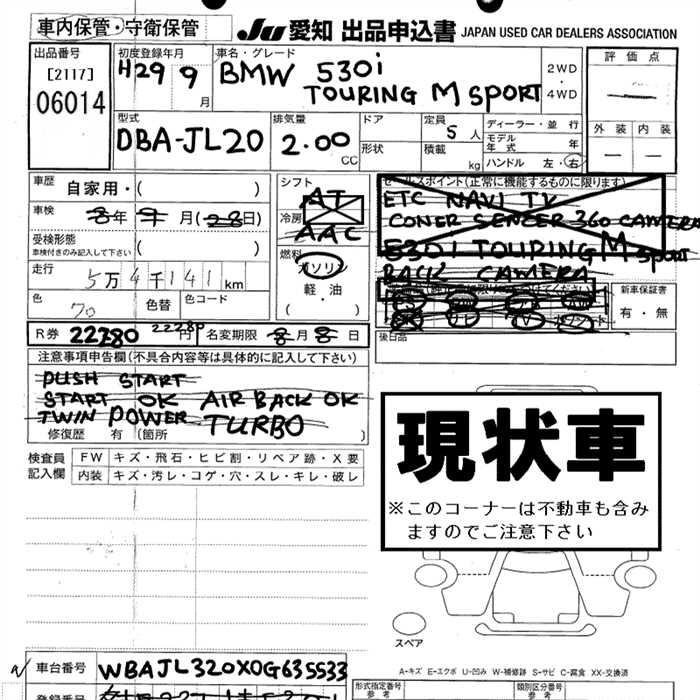 車内保管・守衛保管
JU 愛知 出品申込書 JAPAN USED CAR DEALERS ASSOCIATION
出品番号
[2117]
06014
初度登録年月
H29 9月
車名・グレード
BMW 530i
TOURING M SPORT
2WD
・
4WD
評価点
外装 内装
型式
DBA-JL20
排気量
2.00
CC
ドア
形状
定員
5人
積載
kg
ディーラー・並行
モデル年式 年
ハンドル 左・右
車歴 自家用・( )
車検 8年 9月(28日)
受検形態
車検付きのみ記入して下さい ( )
走行 5万4千141km
色 70 色替 色コード
シフト
AT
冷房
AAC
燃料
ガソリン
・
軽・油
( )
セールスポイント(正常に機能するものに限ります)
ETC NAVI TV
CONER SENCER 360 CAMERA
530i TOURING M sport
BACK CAMERA
新車保証書
有・無
後日品
R券 22280 22280 円 名変期限 8月8日
注意事項申告欄(不具合内容等は具体的に記入して下さい)
PUSH START
START OK AIR BACK OK
TWIN POWER TURBO
修復歴 有 (箇所 )
検査員記入欄
FW キズ・飛石・ヒビ割・リペア跡・X要
内装 キズ・汚レ・コゲ・穴・スレ・キレ・破レ
現状車
※このコーナーは不動車も含み
ますのでご注意下さい
スペア
A-キズ E-エクボ U-凹み W-補修跡 S-サビ C-腐食 XX-交換済
車台番号 WBAJL320X0G635533
登録番号
形式指定番号
参考
類別区分番号
参考